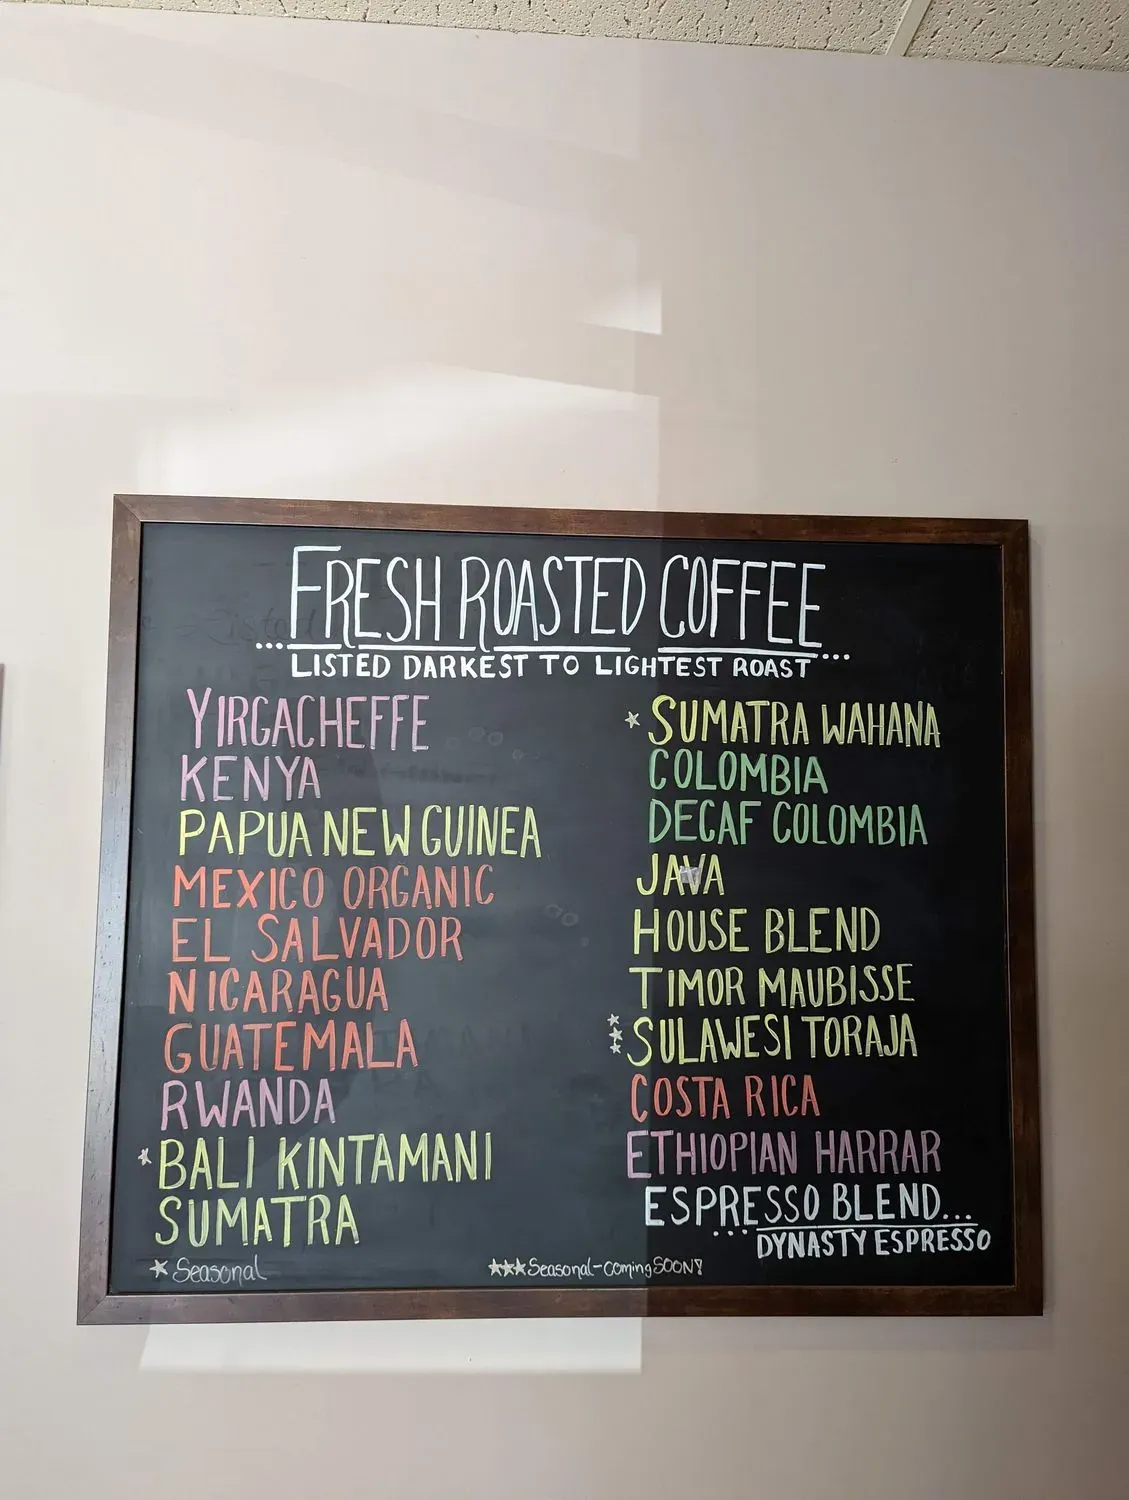 FRESH ROASTED COFFEE
...LISTED DARKEST TO LIGHTEST ROAST...
YIRGACHEFFE
KENYA
PAPUA NEW GUINEA
MEXICO ORGANIC
EL SALVADOR
NICARAGUA
GUATEMALA
RWANDA
* BALI KINTAMANI
SUMATRA
* SUMATRA WAHANA
COLOMBIA
DECAF COLOMBIA
JAVA
HOUSE BLEND
TIMOR MAUBISSE
*** SULAWESI TORAJA
COSTA RICA
ETHIOPIAN HARRAR
ESPRESSO BLEND...
...DYNASTY ESPRESSO
* Seasonal
***Seasonal-coming SOON!